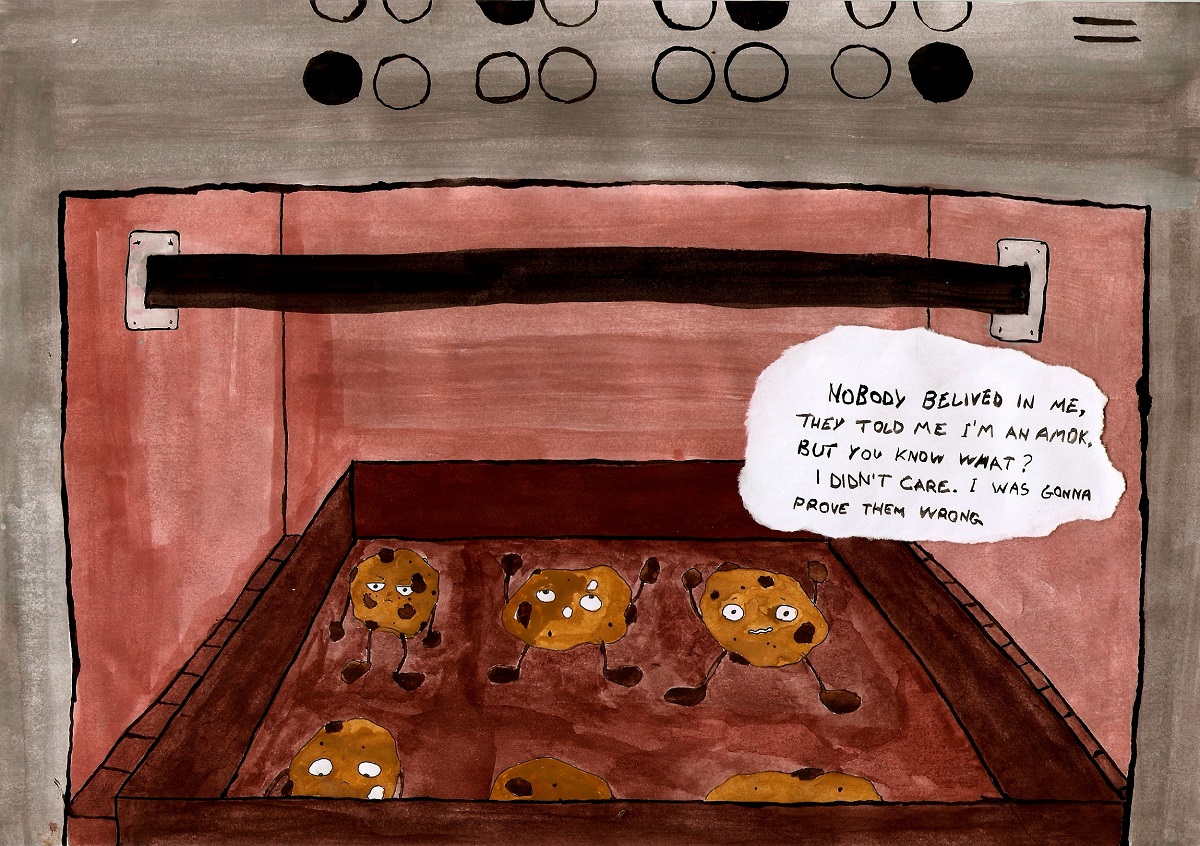 NOBODY BELIVED IN ME,
THEY TOLD ME I'M AN AMOK,
BUT YOU KNOW WHAT?
I DIDN'T CARE. I WAS GONNA
PROVE THEM WRONG